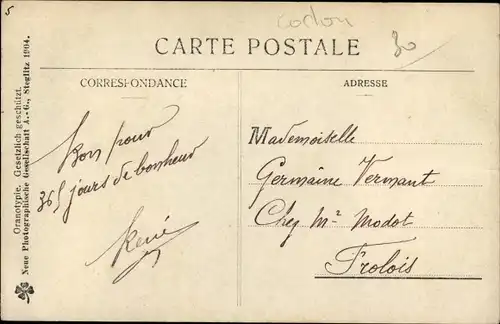 5
cochon
30
CARTE POSTALE
CORRESPONDANCE
ADRESSE
Oranotypie. Gesetzlich geschützt.
Neue Photographische Gesellschaft A.-G., Steglitz 1904.
Bon pour
365 jours de bonheur
René
Mademoiselle
Germaine Vermant
Chez Mr Modot
Frolois